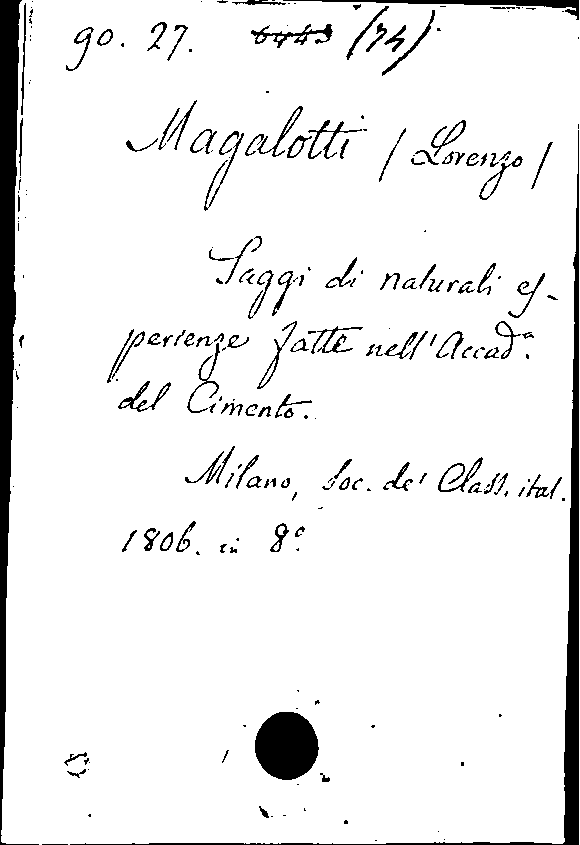 90. 27. 6443 (74)
Magalotti / Lorenzo /
Saggi di naturali es-
perienze fatte nell'Accad.a
del Cimento.
Milano, Soc. de' Class. ital.
1806. in 8.o